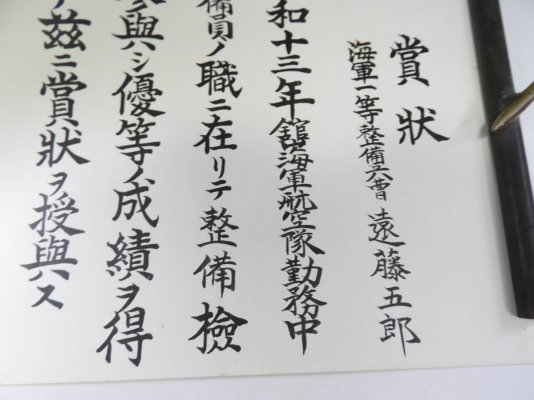 賞狀
海軍一等整備兵曹 遠藤五郎
和十三年館山海軍航空隊勤務中
備員ノ職ニ在リテ整備檢
參與ハシ優等ノ成績ヲ得
茲ニ賞狀ヲ授與ス